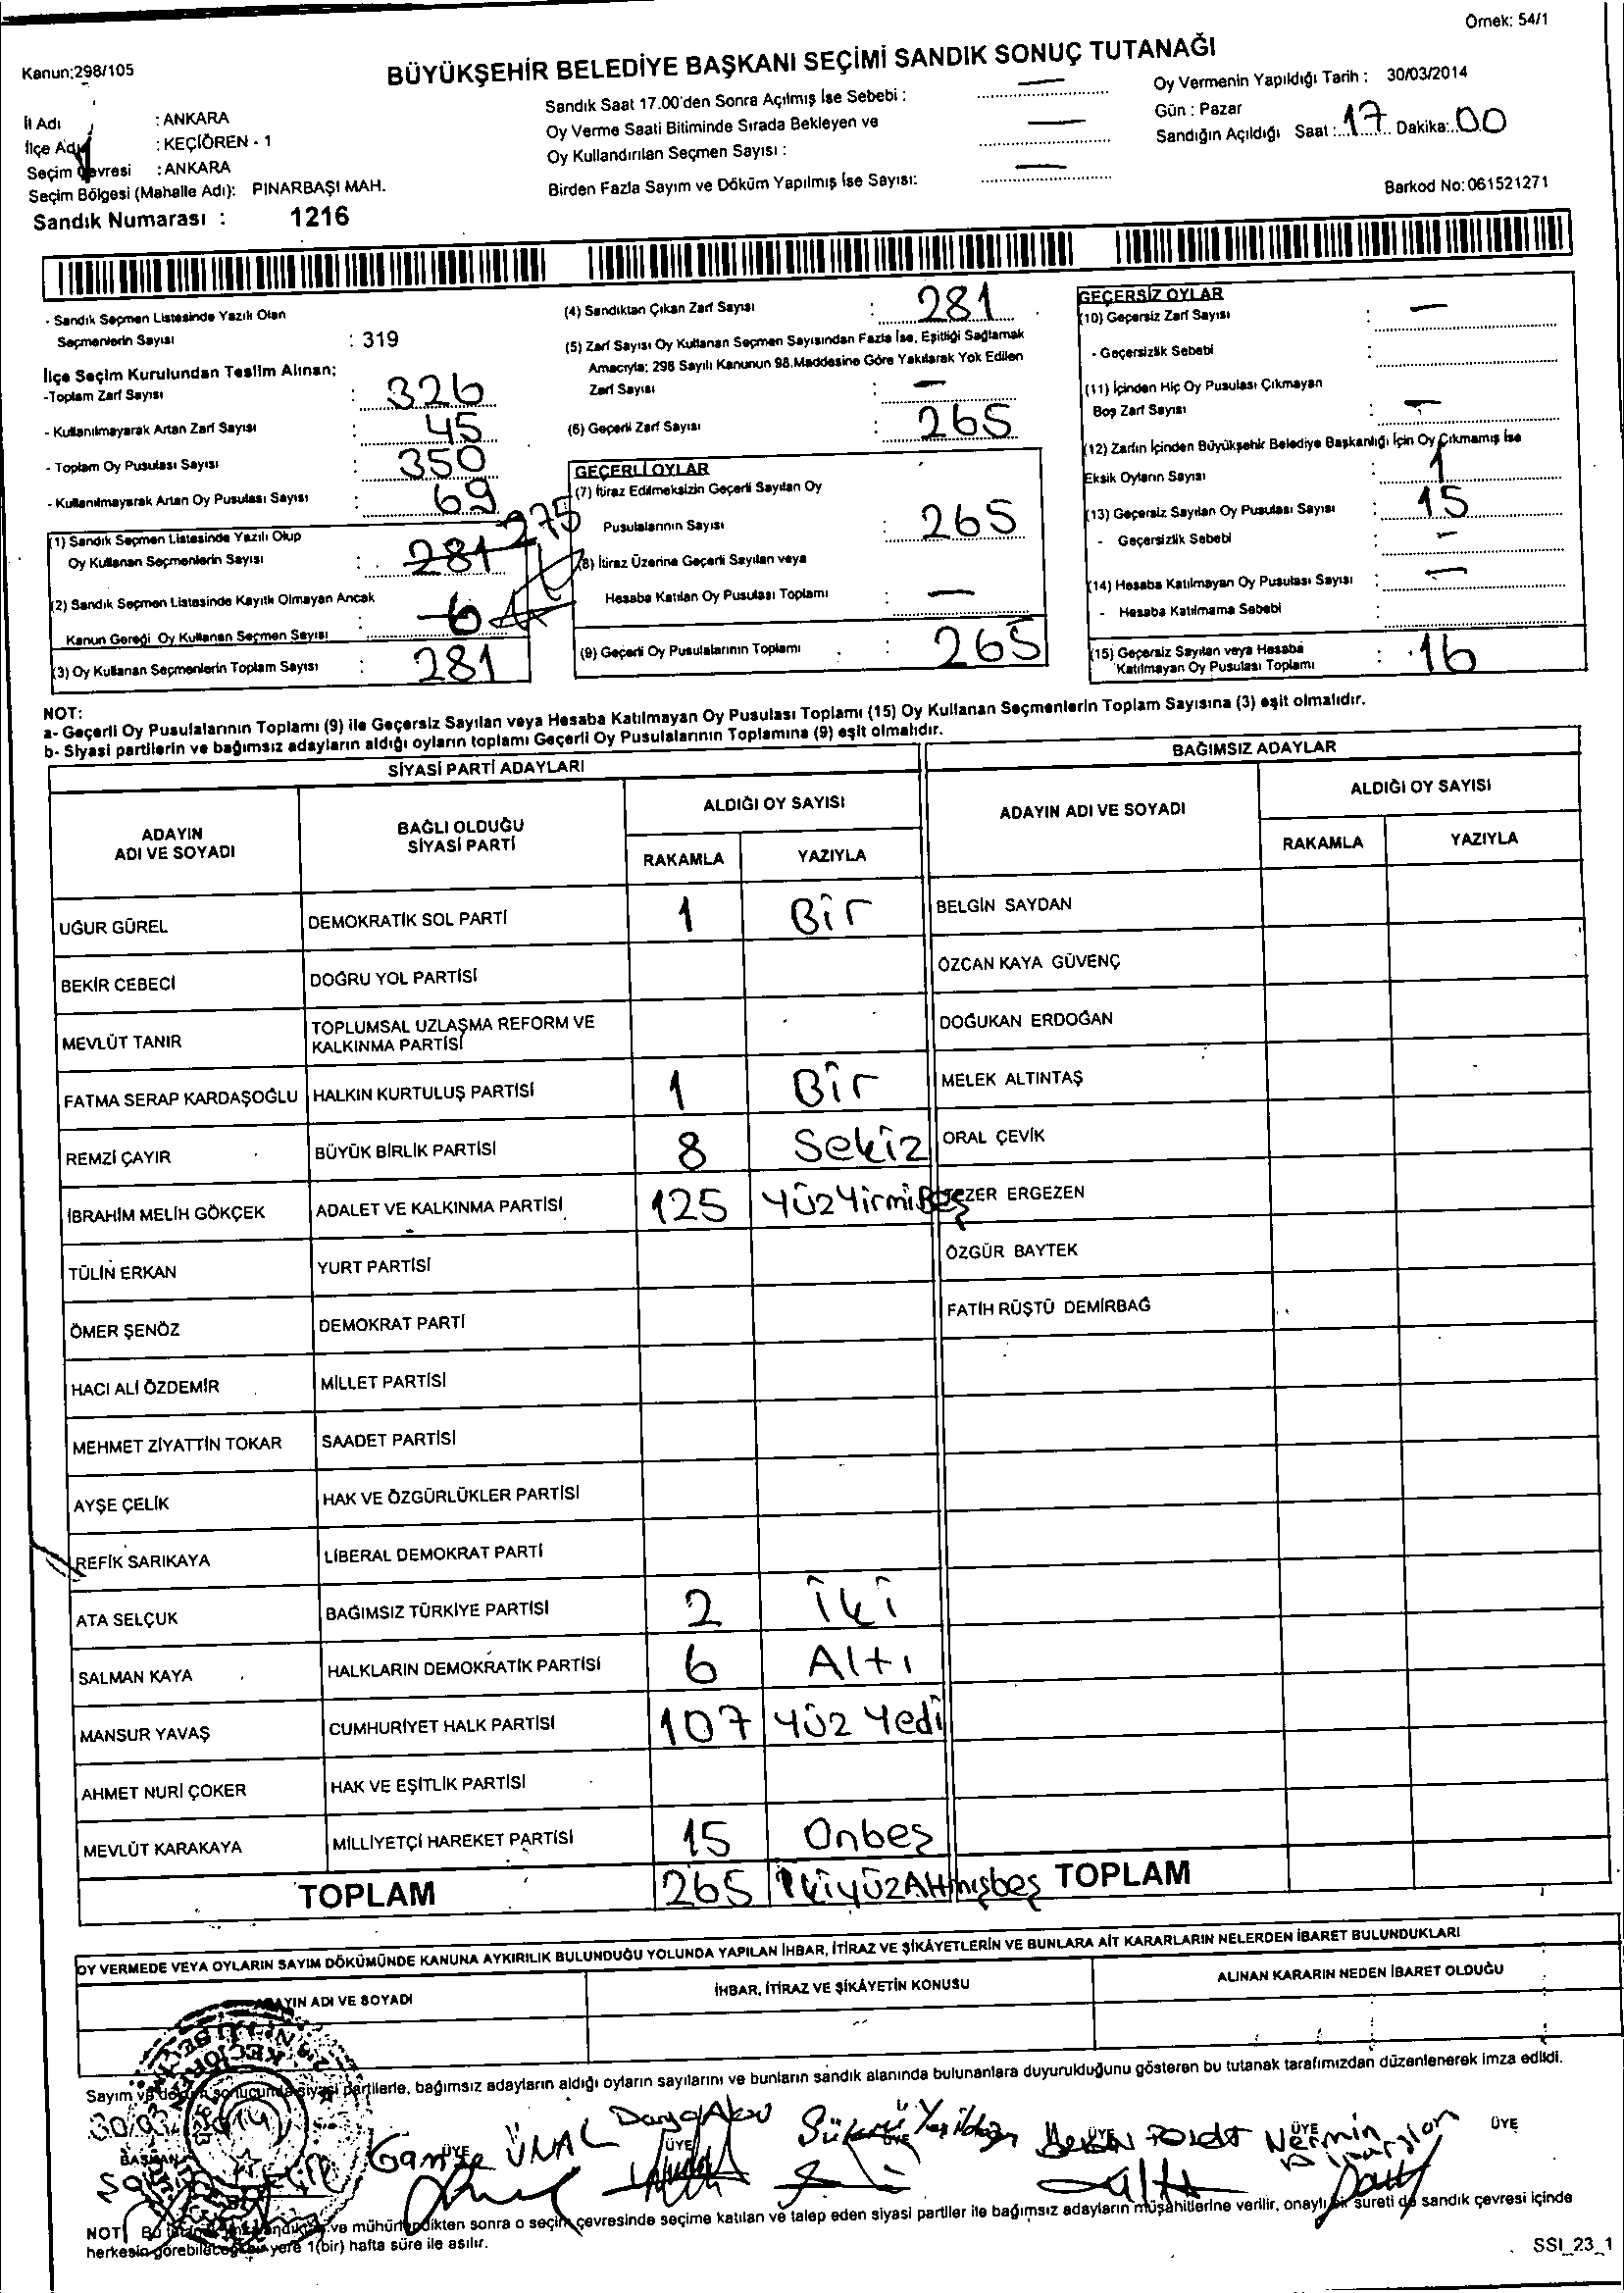 Örnek: 54/1
Kanun:298/105
BÜYÜKŞEHİR BELEDİYE BAŞKANI SEÇİMİ SANDIK SONUÇ TUTANAĞI
İl Adı : ANKARA
İlçe Adı : KEÇİÖREN - 1
Seçim Çevresi : ANKARA
Seçim Bölgesi (Mahalle Adı): PINARBAŞI MAH.
Sandık Numarası : 1216
Sandık Saat 17.00'den Sonra Açılmış İse Sebebi : —
Oy Verme Saati Bitiminde Sırada Bekleyen ve
Oy Kullandırılan Seçmen Sayısı : —
Birden Fazla Sayım ve Döküm Yapılmış İse Sayısı: —
Oy Vermenin Yapıldığı Tarih : 30/03/2014
Gün : Pazar
Sandığın Açıldığı Saat : 17 Dakika: 00
Barkod No: 061521271
- Sandık Seçmen Listesinde Yazılı Olan
Seçmenlerin Sayısı : 319
İlçe Seçim Kurulundan Teslim Alınan:
-Toplam Zarf Sayısı : 326
- Kullanılmayarak Artan Zarf Sayısı : 45
- Toplam Oy Pusulası Sayısı : 350
- Kullanılmayarak Artan Oy Pusulası Sayısı : 69
(1) Sandık Seçmen Listesinde Yazılı Olup
Oy Kullanan Seçmenlerin Sayısı : 281 275
(2) Sandık Seçmen Listesinde Kayıtlı Olmayan Ancak
Kanun Gereği Oy Kullanan Seçmen Sayısı : 6
(3) Oy Kullanan Seçmenlerin Toplam Sayısı : 281
(4) Sandıktan Çıkan Zarf Sayısı : 281
(5) Zarf Sayısı Oy Kullanan Seçmen Sayısından Fazla İse, Eşitliği Sağlamak
Amacıyla; 298 Sayılı Kanunun 98.Maddesine Göre Yakılarak Yok Edilen
Zarf Sayısı : —
(6) Geçerli Zarf Sayısı : 265
GEÇERLİ OYLAR
(7) İtiraz Edilmeksizin Geçerli Sayılan Oy
Pusulalarının Sayısı : 265
(8) İtiraz Üzerine Geçerli Sayılan veya
Hesaba Katılan Oy Pusulası Toplamı : —
(9) Geçerli Oy Pusulalarının Toplamı : 265
GEÇERSİZ OYLAR
(10) Geçersiz Zarf Sayısı : —
- Geçersizlik Sebebi :
(11) İçinden Hiç Oy Pusulası Çıkmayan
Boş Zarf Sayısı : —
(12) Zarfın İçinden Büyükşehir Belediye Başkanlığı İçin Oy Çıkmamış İse
Eksik Oyların Sayısı : 1
(13) Geçersiz Sayılan Oy Pusulası Sayısı : 15
- Geçersizlik Sebebi : —
(14) Hesaba Katılmayan Oy Pusulası Sayısı : —
- Hesaba Katılmama Sebebi :
(15) Geçersiz Sayılan veya Hesaba
Katılmayan Oy Pusulası Toplamı : 16
NOT:
a- Geçerli Oy Pusulalarının Toplamı (9) ile Geçersiz Sayılan veya Hesaba Katılmayan Oy Pusulası Toplamı (15) Oy Kullanan Seçmenlerin Toplam Sayısına (3) eşit olmalıdır.
b- Siyasi partilerin ve bağımsız adayların aldığı oyların toplamı Geçerli Oy Pusulalarının Toplamına (9) eşit olmalıdır.
SİYASİ PARTİ ADAYLARI
ADAYIN ADI VE SOYADI
BAĞLI OLDUĞU SİYASİ PARTİ
ALDIĞI OY SAYISI
RAKAMLA YAZIYLA
UĞUR GÜREL DEMOKRATİK SOL PARTİ 1 Bir
BEKİR CEBECİ DOĞRU YOL PARTİSİ
MEVLÜT TANIR TOPLUMSAL UZLAŞMA REFORM VE KALKINMA PARTİSİ
FATMA SERAP KARDAŞOĞLU HALKIN KURTULUŞ PARTİSİ 1 Bir
REMZİ ÇAYIR BÜYÜK BİRLİK PARTİSİ 8 Sekiz
İBRAHİM MELİH GÖKÇEK ADALET VE KALKINMA PARTİSİ 125 YüzYirmiBeş
TÜLİN ERKAN YURT PARTİSİ
ÖMER ŞENÖZ DEMOKRAT PARTİ
HACI ALİ ÖZDEMİR MİLLET PARTİSİ
MEHMET ZİYATTİN TOKAR SAADET PARTİSİ
AYŞE ÇELİK HAK VE ÖZGÜRLÜKLER PARTİSİ
REFİK SARIKAYA LİBERAL DEMOKRAT PARTİ
ATA SELÇUK BAĞIMSIZ TÜRKİYE PARTİSİ 2 İki
SALMAN KAYA HALKLARIN DEMOKRATİK PARTİSİ 6 Altı
MANSUR YAVAŞ CUMHURİYET HALK PARTİSİ 107 Yüz Yedi
AHMET NURİ ÇOKER HAK VE EŞİTLİK PARTİSİ
MEVLÜT KARAKAYA MİLLİYETÇİ HAREKET PARTİSİ 15 Onbeş
TOPLAM 265 İkiyüzAltmışbeş
BAĞIMSIZ ADAYLAR
ADAYIN ADI VE SOYADI
ALDIĞI OY SAYISI
RAKAMLA YAZIYLA
BELGİN SAYDAN
ÖZCAN KAYA GÜVENÇ
DOĞUKAN ERDOĞAN
MELEK ALTINTAŞ
ORAL ÇEVİK
EZER ERGEZEN
ÖZGÜR BAYTEK
FATİH RÜŞTÜ DEMİRBAĞ
TOPLAM
OY VERMEDE VEYA OYLARIN SAYIM DÖKÜMÜNDE KANUNA AYKIRILIK BULUNDUĞU YOLUNDA YAPILAN İHBAR, İTİRAZ VE ŞİKÂYETLERİN VE BUNLARA AİT KARARLARIN NELERDEN İBARET BULUNDUKLARI
ADI VE SOYADI
İHBAR, İTİRAZ VE ŞİKÂYETİN KONUSU
ALINAN KARARIN NEDEN İBARET OLDUĞU
Sayım ve döküm sonucunda siyasi partilerle, bağımsız adayların aldığı oyların sayılarını ve bunların sandık alanında bulunanlara duyurukduğunu gösteren bu tutanak tarafımızdan düzenlenerek imza edildi.
30/03/2014
BAŞKAN ÜYE ÜYE ÜYE ÜYE ÜYE ÜYE
Gamze ÜNAL
Nermin
NOT: ve mühürlendikten sonra o seçim çevresinde seçime katılan ve talep eden siyasi partiler ile bağımsız adayların müşahitlerine verilir, onaylı bir sureti de sandık çevresi içinde
herkesin görebileceği bir yere 1(bir) hafta süre ile asılır.
SSI_23_1